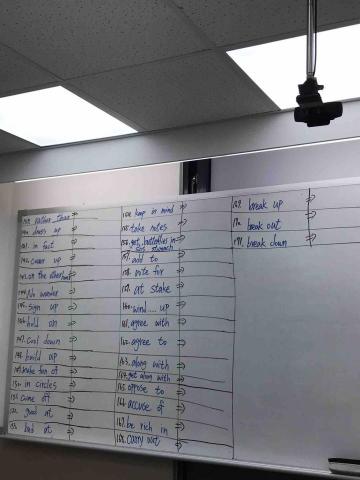 139. rather than ⇒
140. dress up ⇒
141. in fact ⇒
142. cover up ⇒
143. on the other hand ⇒
144. No wonder ⇒
145. sign up ⇒
146. hold on ⇒
147. Cool down ⇒
148. build up ⇒
149. make fun of ⇒
150. in circles ⇒
151. come off ⇒
152. good at ⇒
153. bad at ⇒
154. keep in mind ⇒
155. take notes ⇒
156. get butterflies in
one's stomach ⇒
157. add to ⇒
158. vote for ⇒
159. at stake ⇒
160. wind ... up ⇒
161. agree with ⇒
162. agree to ⇒
163. along with ⇒
164. get along with ⇒
165. oppose to ⇒
166. accuse of ⇒
167. be rich in ⇒
168. carry out ⇒
169. break up ⇒
170. break out ⇒
171. break down ⇒